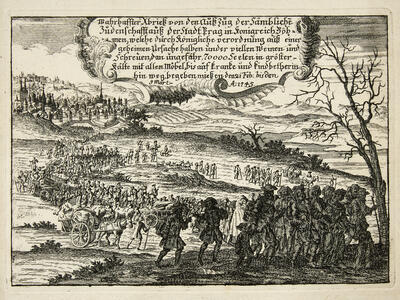 Wahrhaffter Abrieß von den Auß Zug der Sämbliche
Judenschafft auß der Stadt Prag in Königreich Böh-
men, welche durch Königliche verordnung auß einer
geheimen Ursache halben und er viellen Weinen und
Schreuen, an ungefähr, 70000 Seelen in gröster
Kälte mit allen Möbel, biß auf kranke und
hin weg begeben müßen den
A: 1745